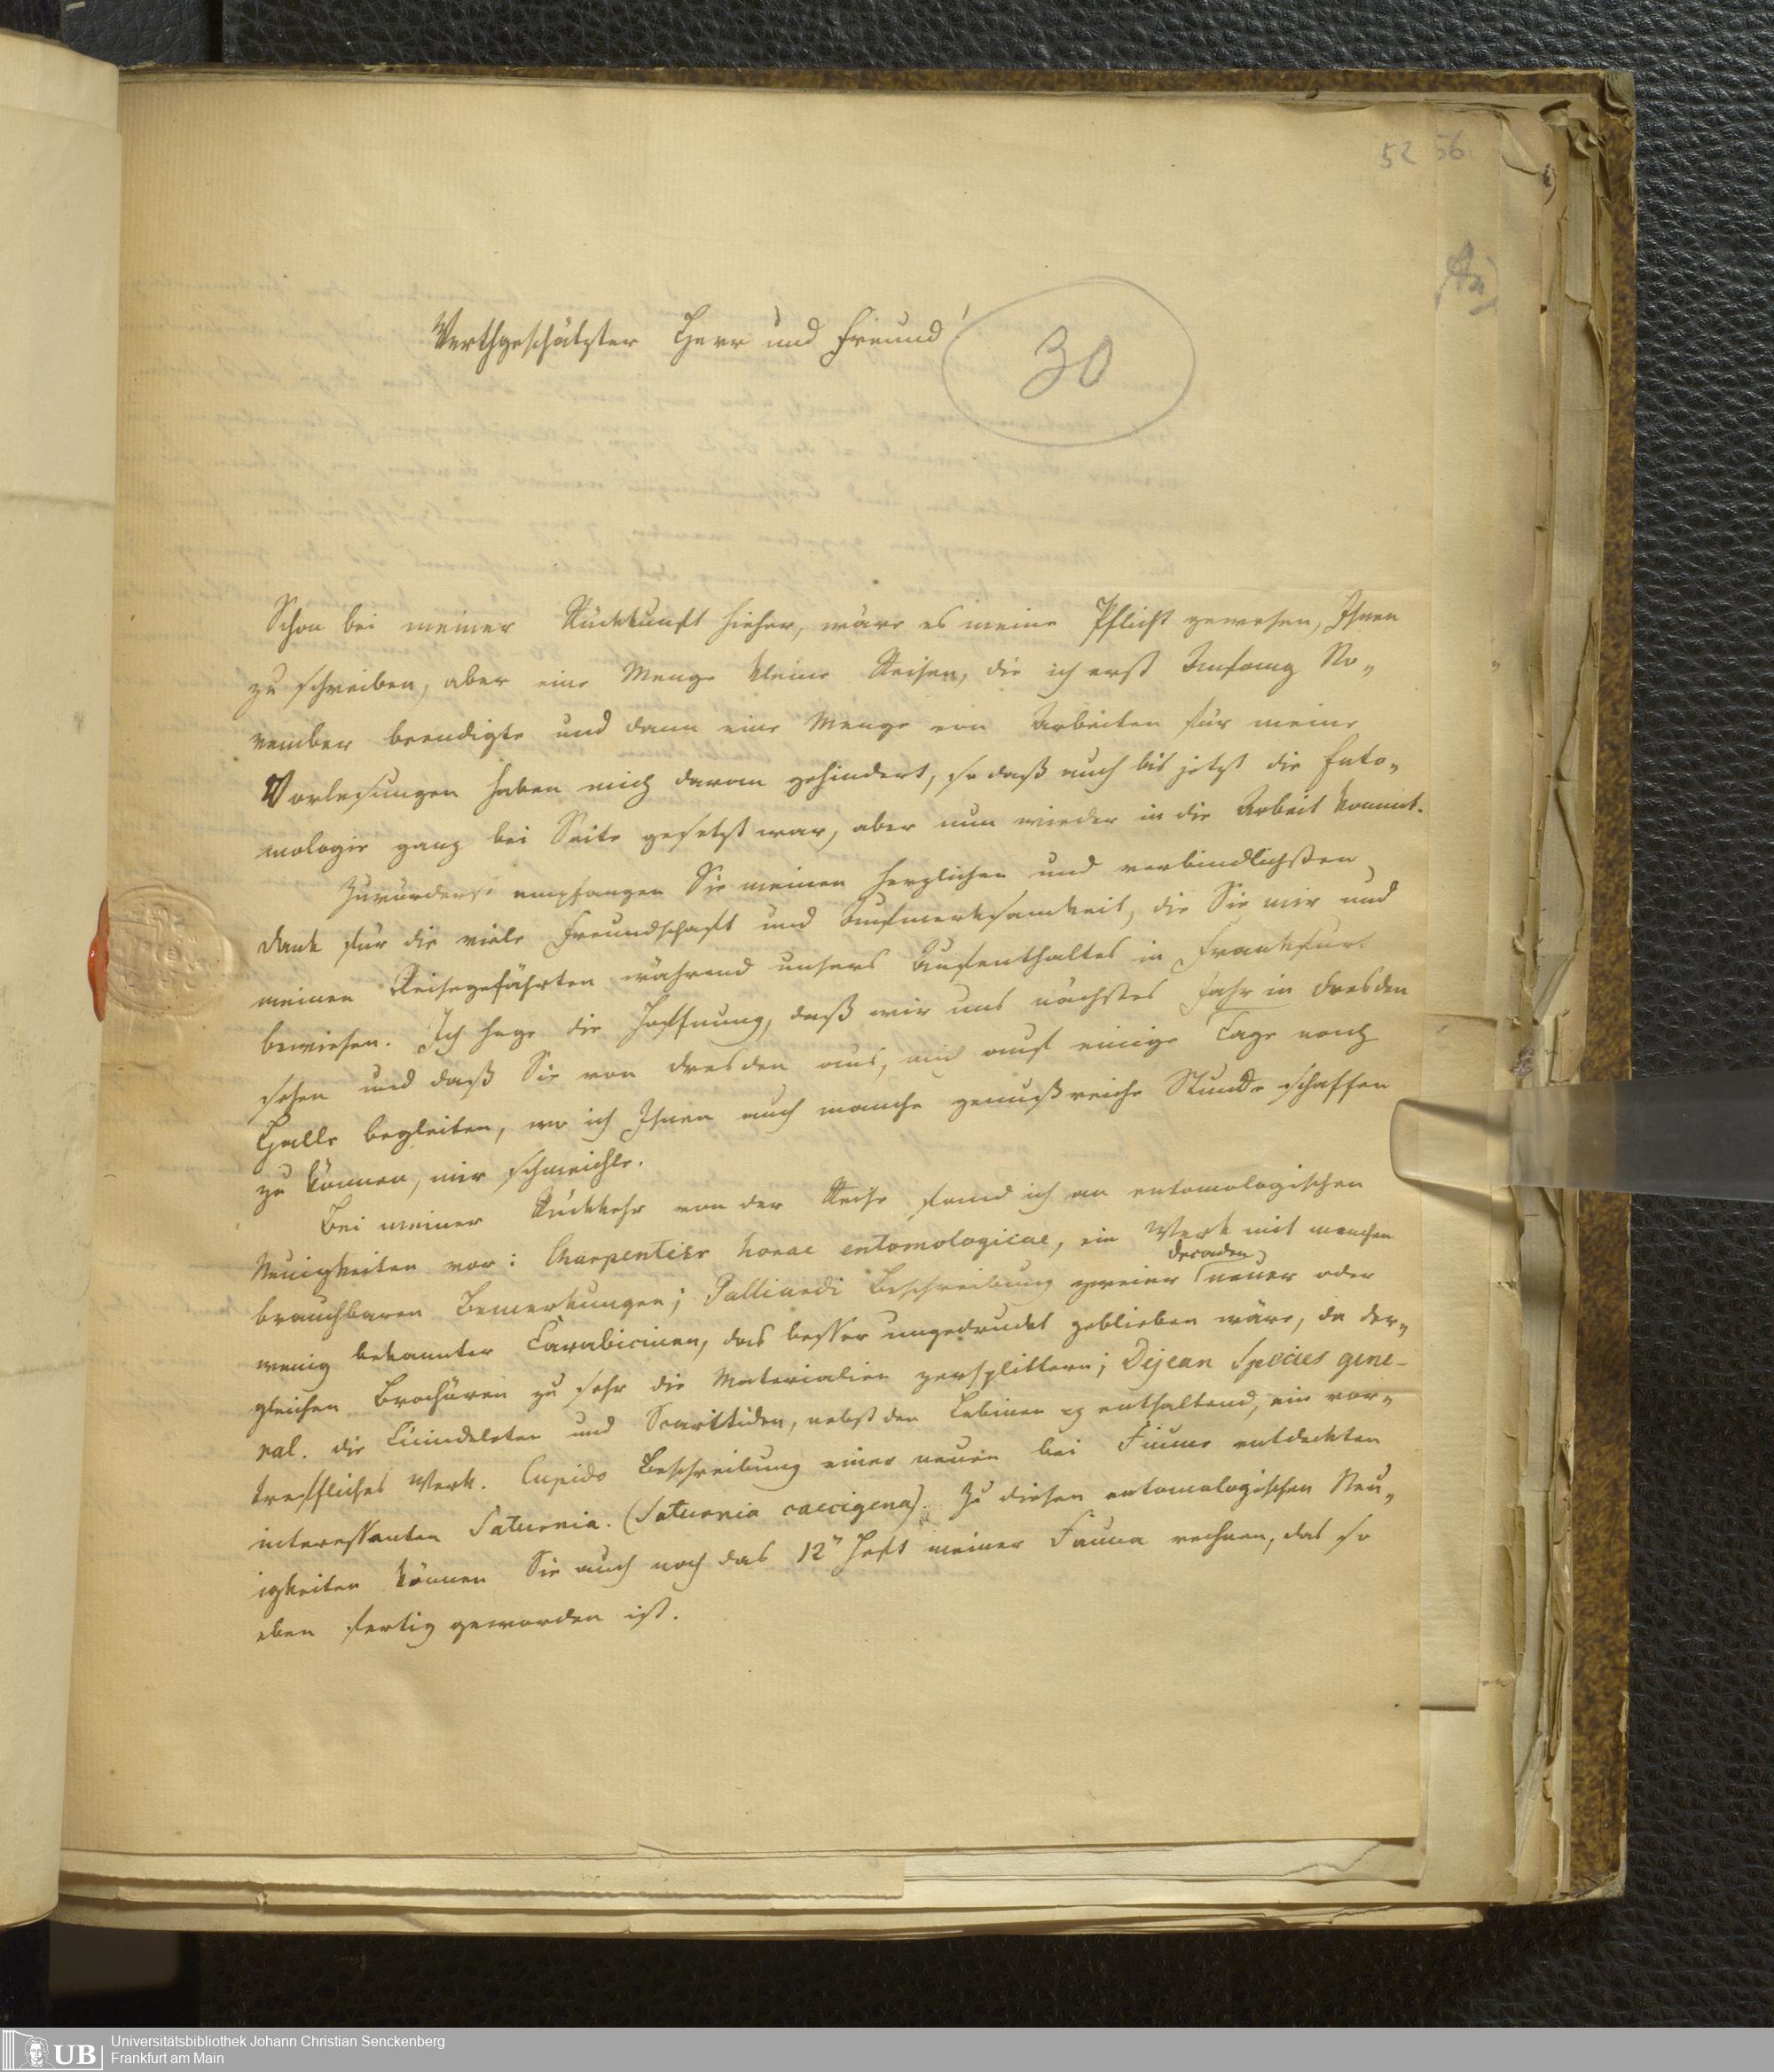 52 56
Werthgeschätzter Herr und Freund!
30
Schon bei meiner Rückkunft hieher, wäre es meine Pflicht gewesen, Ihnen
zu schreiben, aber eine Menge kleine Reisen, die ich erst Anfang No-
vember beendigte und dann eine Menge von Arbeiten für meine
Vorlesungen haben mich daran gehindert, so daß auch bis jetzt die Ento-
mologie ganz bei Seite gesetzt war, aber nun wieder in die Arbeit kommt.
Zuvörderst empfangen Sie meinen herzlichen und verbindlichsten
Dank für die viele Freundschaft und Aufmerksamkeit, die Sie mir und
meinen Reisegefährten während unsers Aufenthaltes in Frankfurt
bewiesen. Ich hege die Hoffnung, daß wir uns nächstes Jahr in Dresden
sehen und daß Sie von Dresden aus, mich auf einige Tage nach
Halle begleiten, wo ich Ihnen auch manche genußreiche Stunde schaffen
zu können, mir schmeichle.
Bei meiner Rückkehr von der Reise fand ich an entomologischen
Neuigkeiten vor: Charpentier horae entomologicae, ein Werk mit manchen
brauchbaren Bemerkungen; Palliardi Beschreibung zweier Decaden neuer oder
wenig bekannter Carabicinen, das besser ungedruckt geblieben wäre, da der-
gleichen Brochüren zu sehr die Materialien zersplittern; Dejean Species gene-
ral. die Cicindeleten und Scaritiden, nebst den Lebinen enthaltend, ein vor-
treffliches Werk. Cupido Beschreibung einer neuen bei Fiume entdeckten
interessanten Saturnia. (Saturnia caecigena). Zu diesen entomologischen Neu-
igkeiten können Sie auch noch das 12" Heft meiner Fauna rechnen, das so
eben fertig geworden ist.
UB
Universitätsbibliothek Johann Christian Senckenberg
Frankfurt am Main